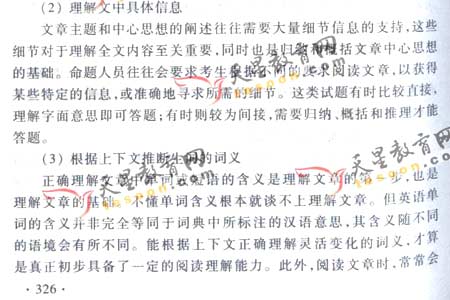 (2) 理解文中具体信息
文章主题和中心思想的阐述往往需要大量细节信息的支持，这些
细节对于理解全文内容至关重要，同时也是归纳和概括文章中心思想
的基础。命题人员往往会要求考生根据不同的要求阅读文章，以获得
某些特定的信息，或准确地寻求所需的细节。这类试题有时比较直接，
理解字面意思即可答题；有时则较为间接，需要归纳、概括和推理才能
答题。
(3) 根据上下文推断生词的词义
正确理解文章中单词或短语的含义是理解文章的第一步，也是
理解文章的基础。不懂单词含义根本就谈不上理解文章。但英语单
词的含义并非完全等同于词典中所标注的汉语意思，其含义随不同
的语境会有所不同。能根据上下文正确理解灵活变化的词义，才算
是真正初步具备了一定的阅读理解能力。此外，阅读文章时，常常会
·326·
天星教育网
tesoon.com
天星教育网
tesoon.com